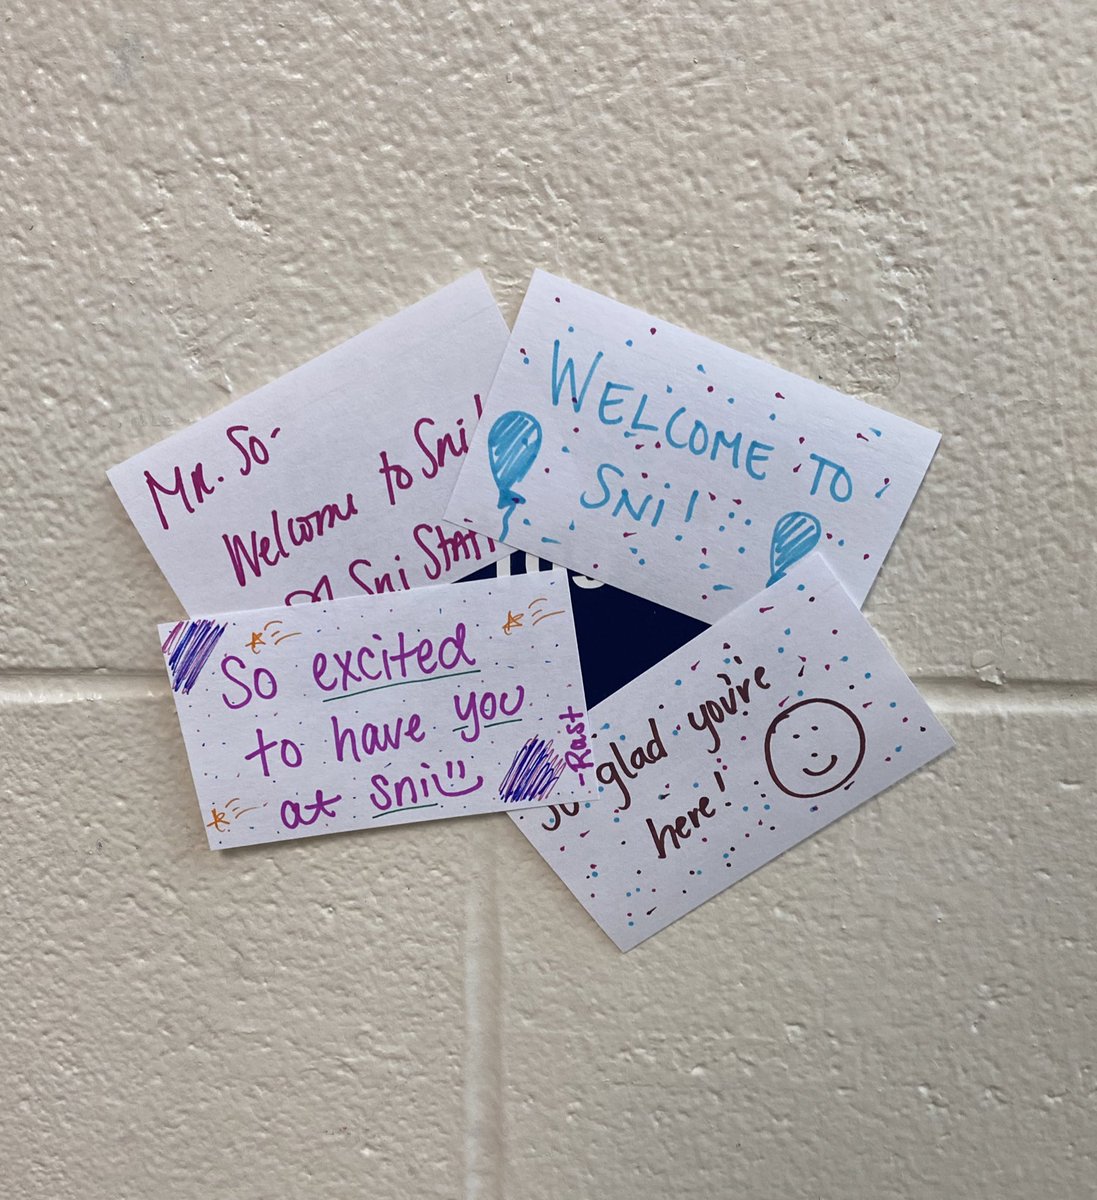 Mr. So-
Welcome to Sni!
Sni Staff
WELCOME TO
SNI!
So excited
to have you
at sni
-Rast
So glad you're
here!